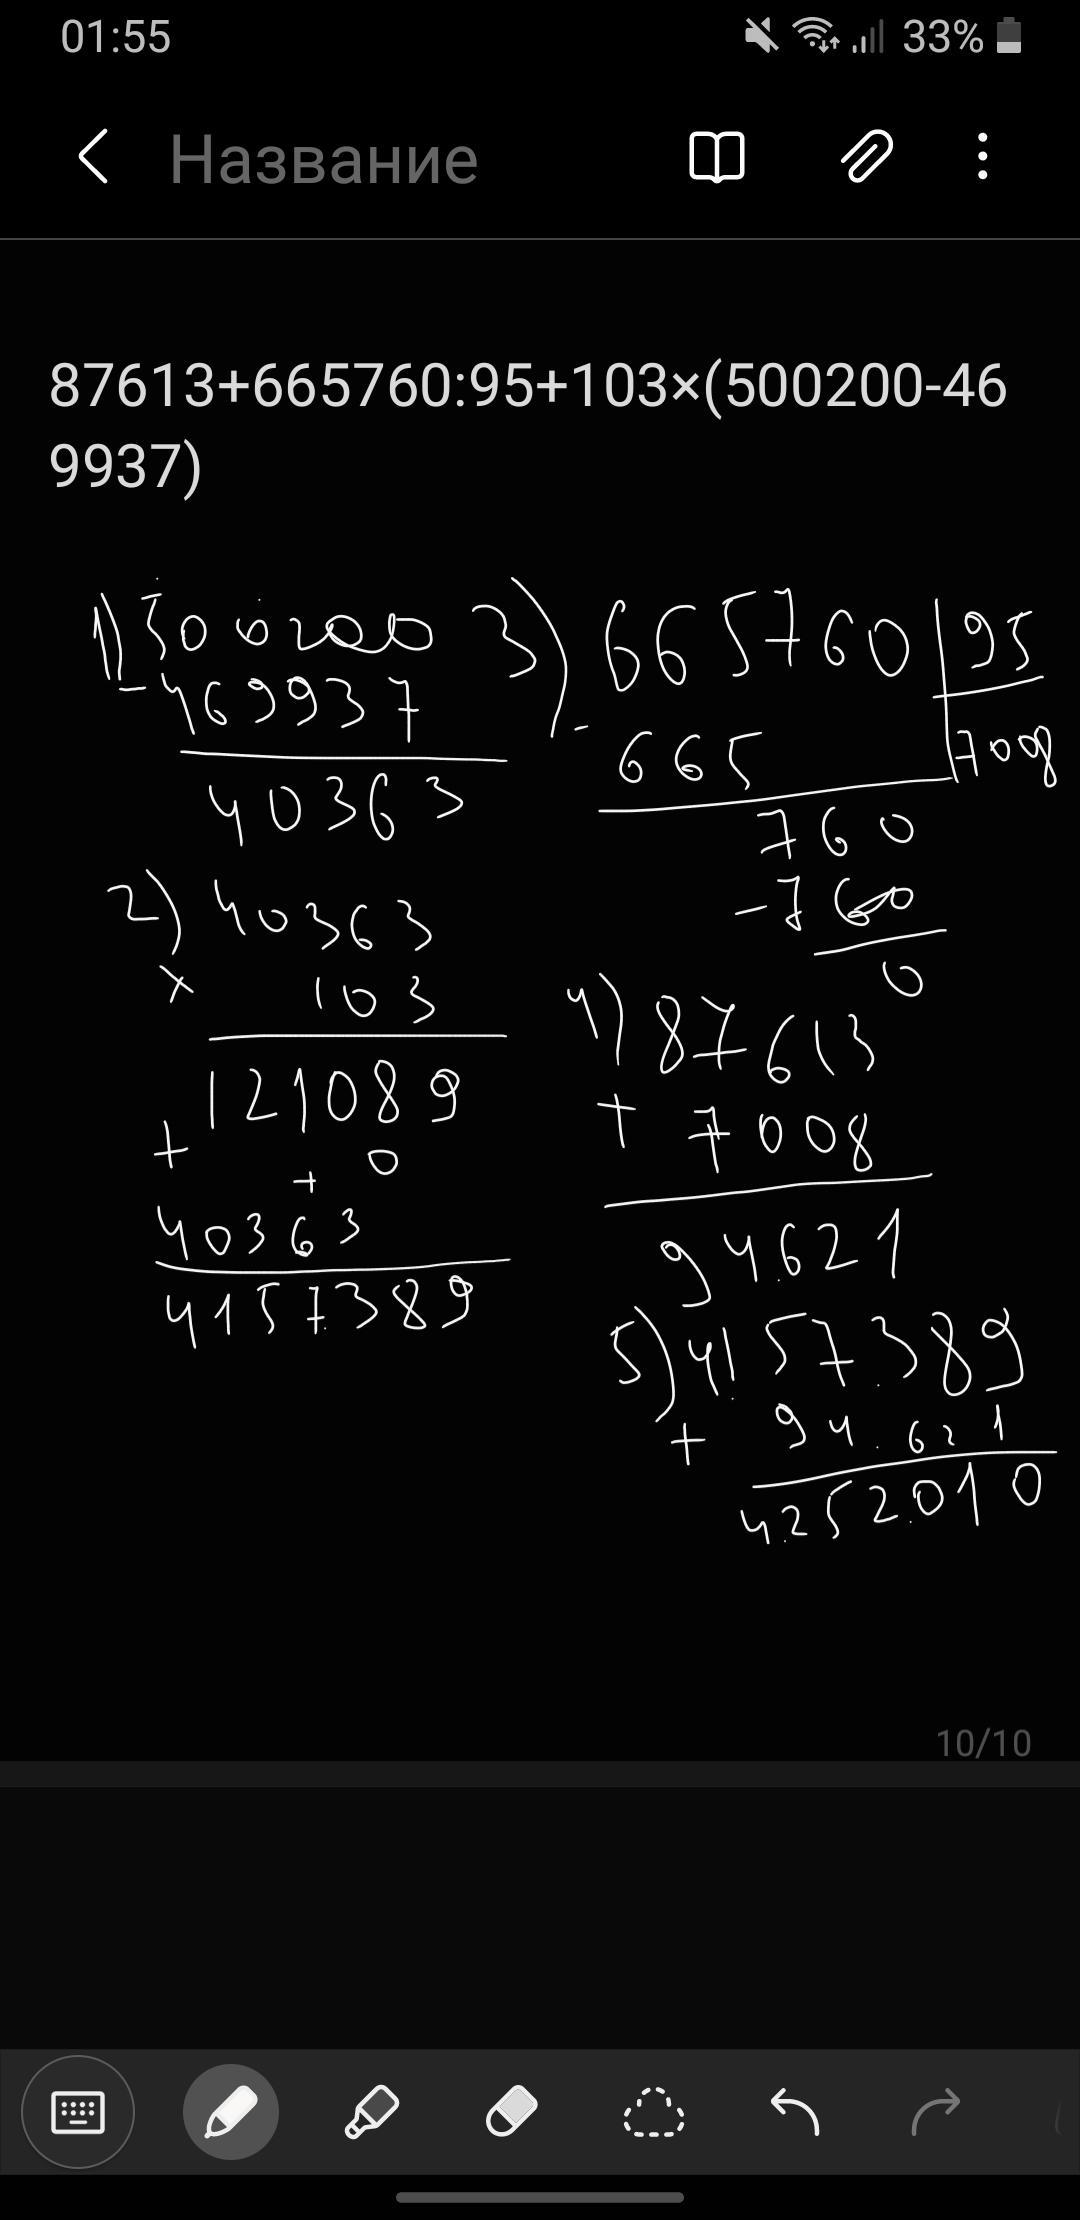 01:55 33%
Название
87613+665760:95+103×(500200-46
9937)
1) 500200
- 469937
40363
2) 40363
× 103
121089
+ 0
+
40363
4157.389
3) 665760 | 95
- 665 7008
760
- 760
0
4) 87613
+ 7008
94.621
5) 4.157.389
+ 94.621
4.252.010
10/10